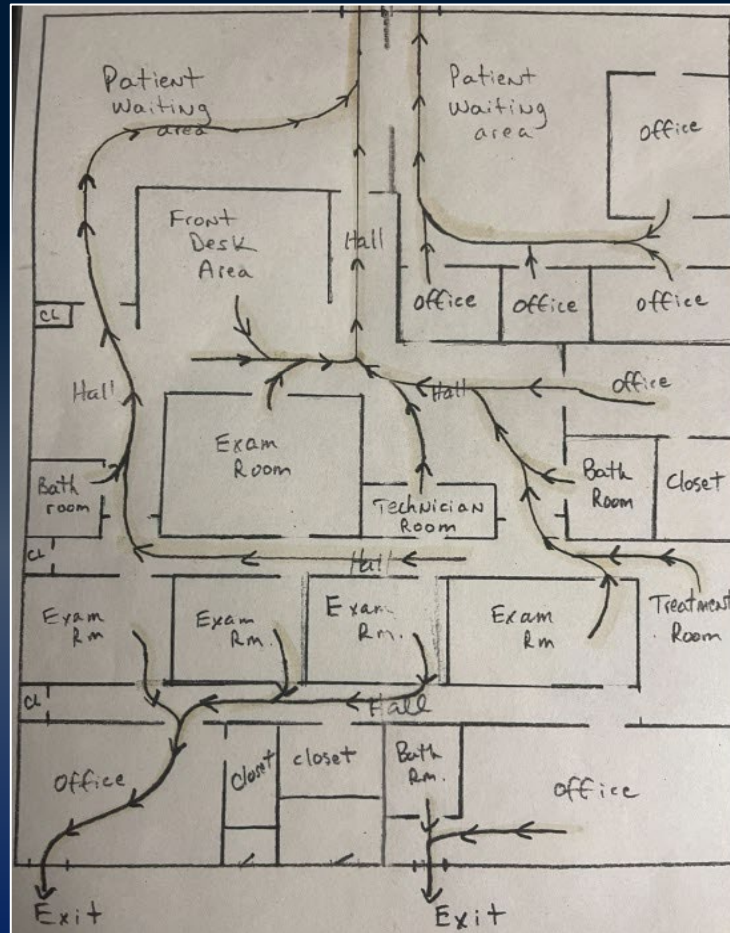 Patient
Waiting
area
Patient
Waiting
area
office
Front
Desk
Area
Hall
office
office
office
CL
Hall
Hall
office
Exam
Room
Bath
room
Technician
Room
Bath
Room
Closet
CL
Hall
Exam
Rm
Exam
Rm.
Exam
Rm.
Exam
Rm
Treatment
Room
CL
Hall
Office
Closet
closet
Bath
Rm.
office
Exit
Exit